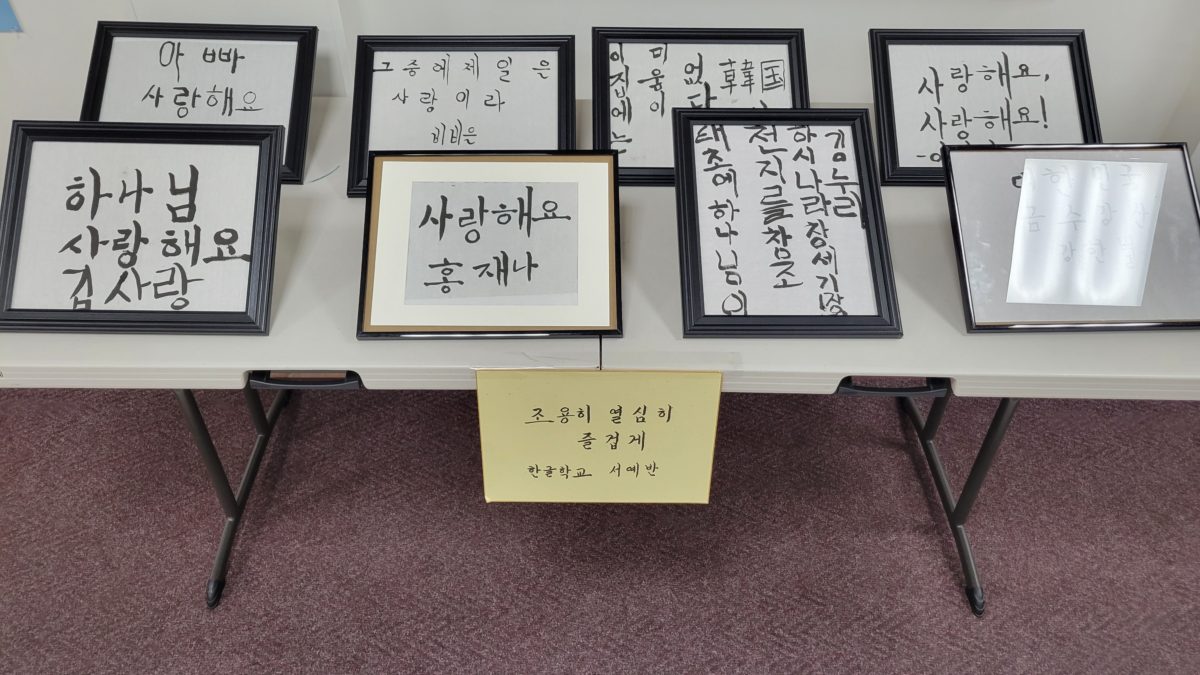 아빠
사랑해요
그중에제일은
사랑이라
이집에는
미움이
없다
韓国
사랑해요,
사랑해요!
하나님
사랑해요
김사랑
사랑해요
홍재나
태초에하나님이
천지를창조
하시니라
김누리
금수강산
조용히 열심히
즐겁게
한글학교 서예반